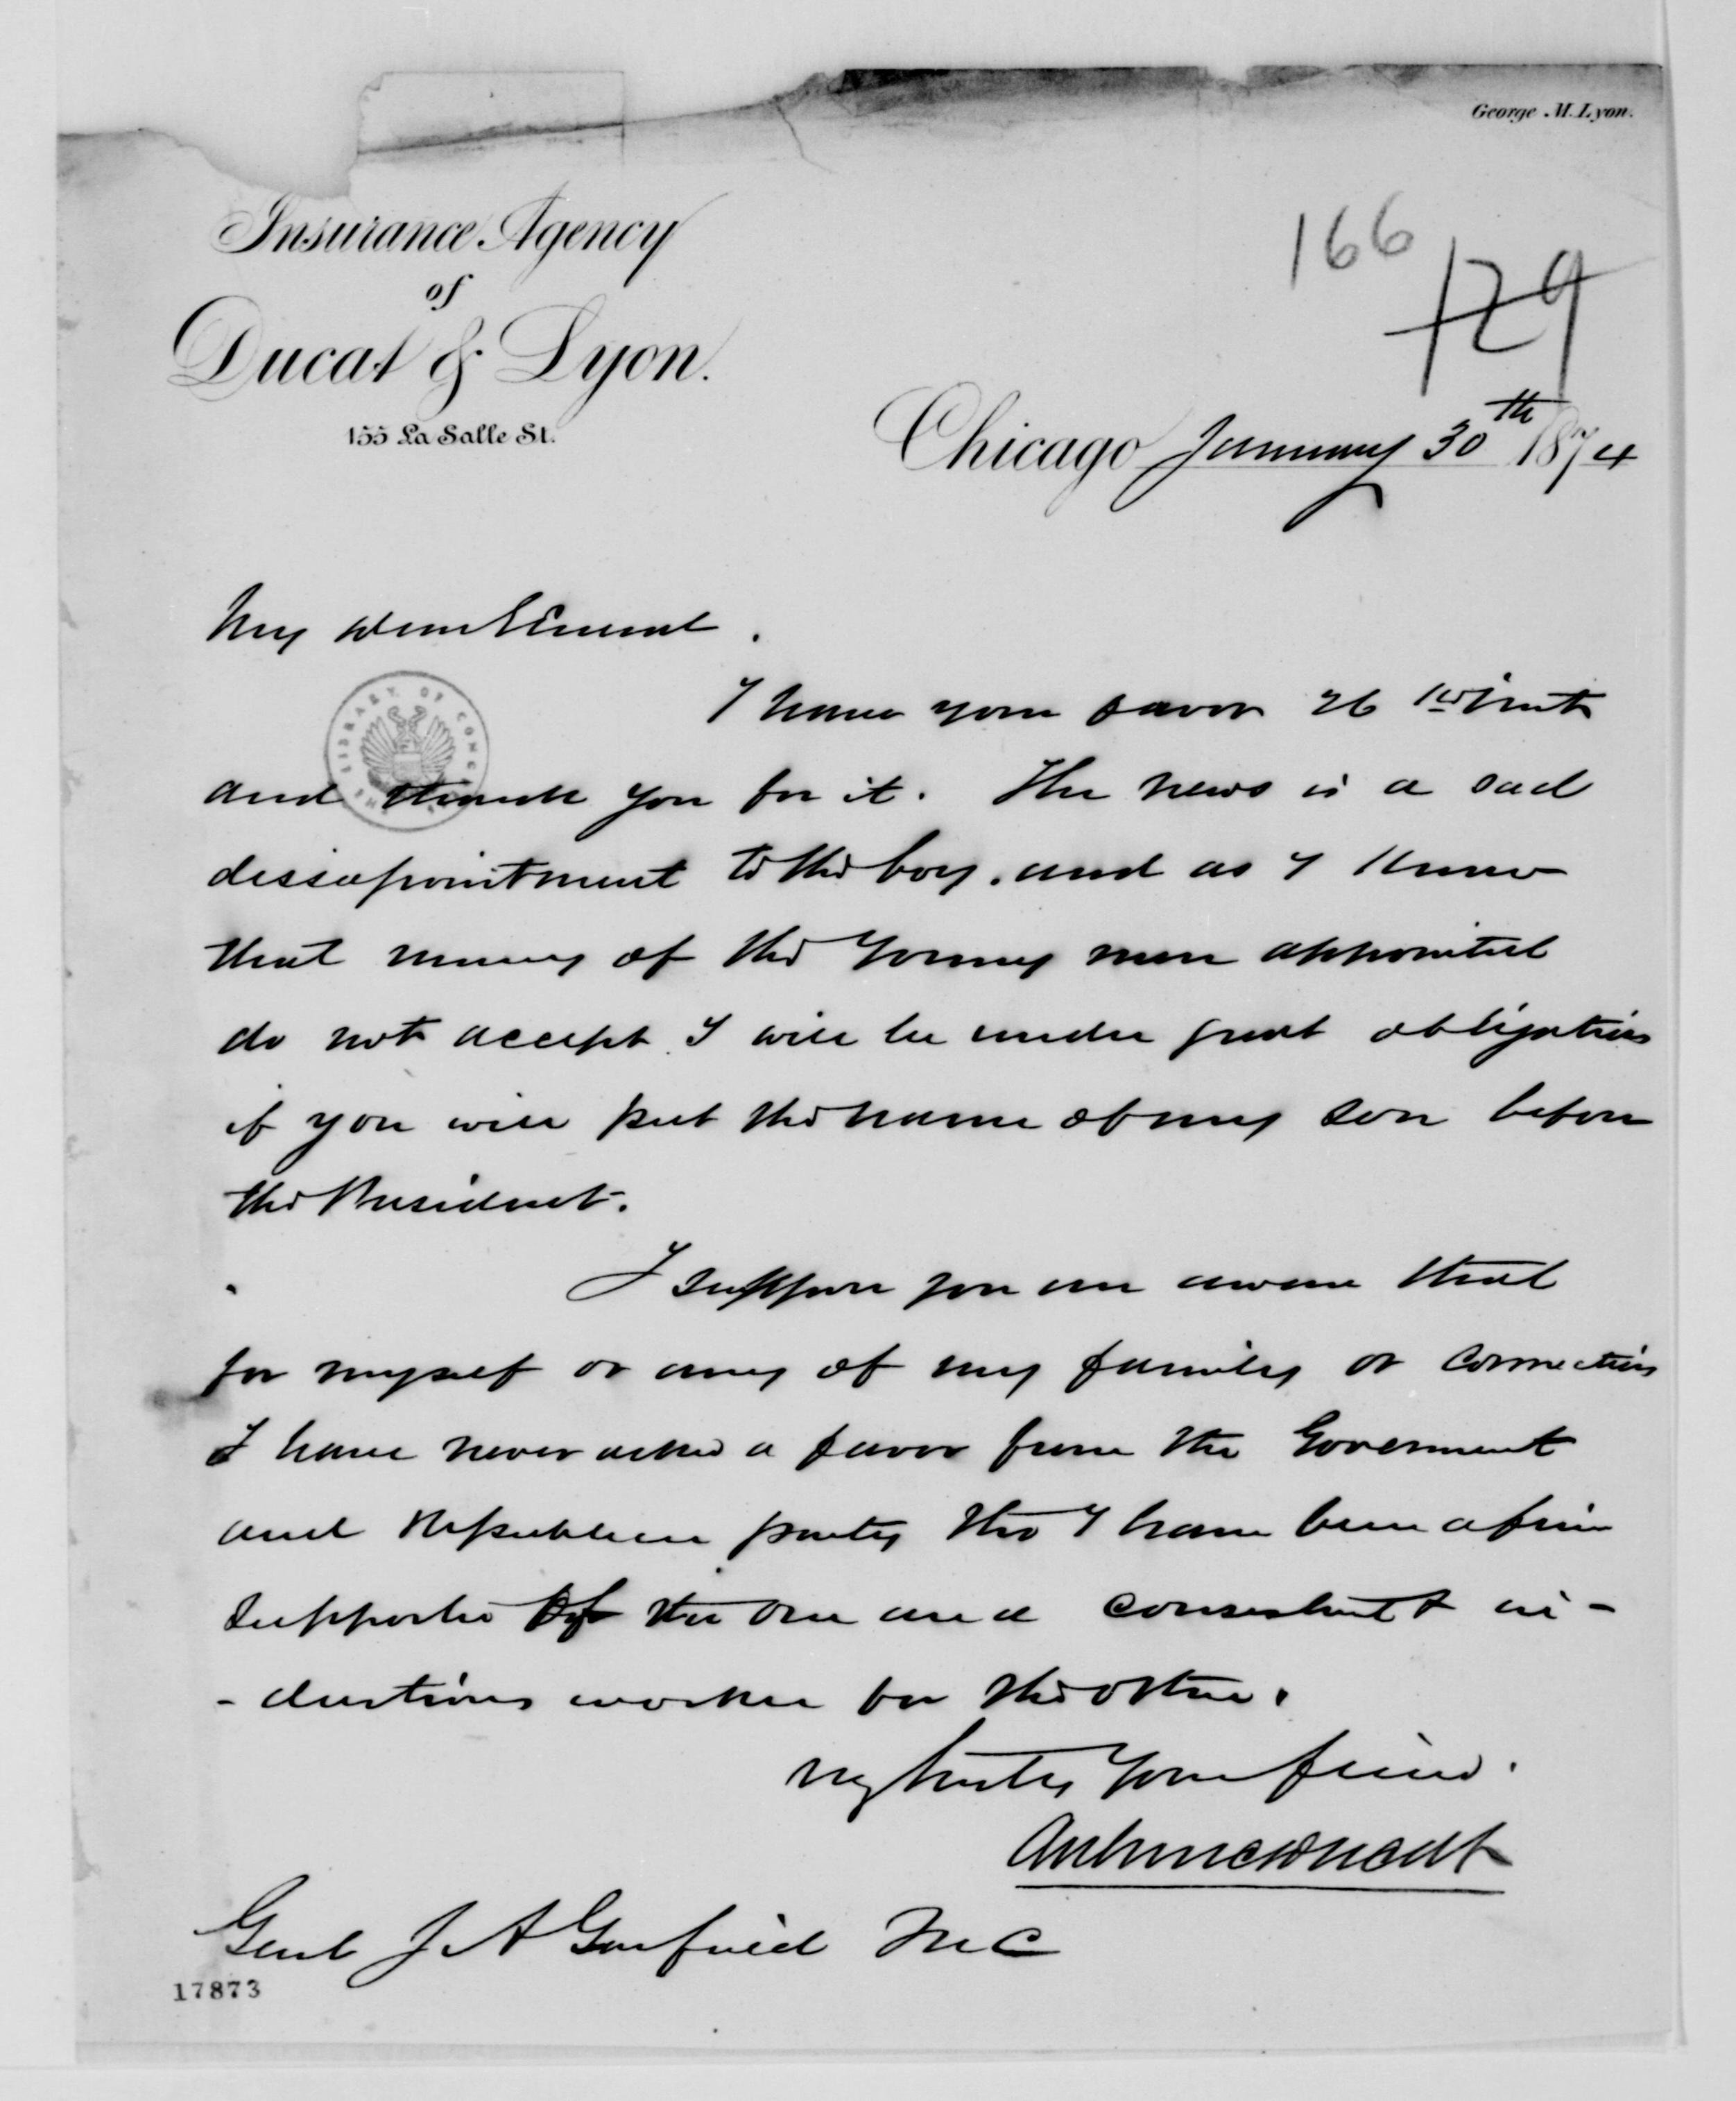 George M. Lyon.
Insurance Agency
of
Ducat & Lyon.
155 La Salle St.
166
129
Chicago January 30th 1874
My dear General.
I have your favor 26 inst
LIBRARY OF CONGRESS
and thank you for it. The news is a sad
dissapointment to the boy. and as I know
that many of the young men appointed
do not accept. I will be under great obligations
if you will put the name of my son before
the President.
I suppose you are aware that
for myself or any of my family or connections
I have never asked a favor from the Goverment
and Republican party tho I have been a firm
supporter of the one and a consistent &  in-
-dustrious worker for the other.
Very truly Your friend.
Arthur C Ducat
Genl J A Garfield M C
17873